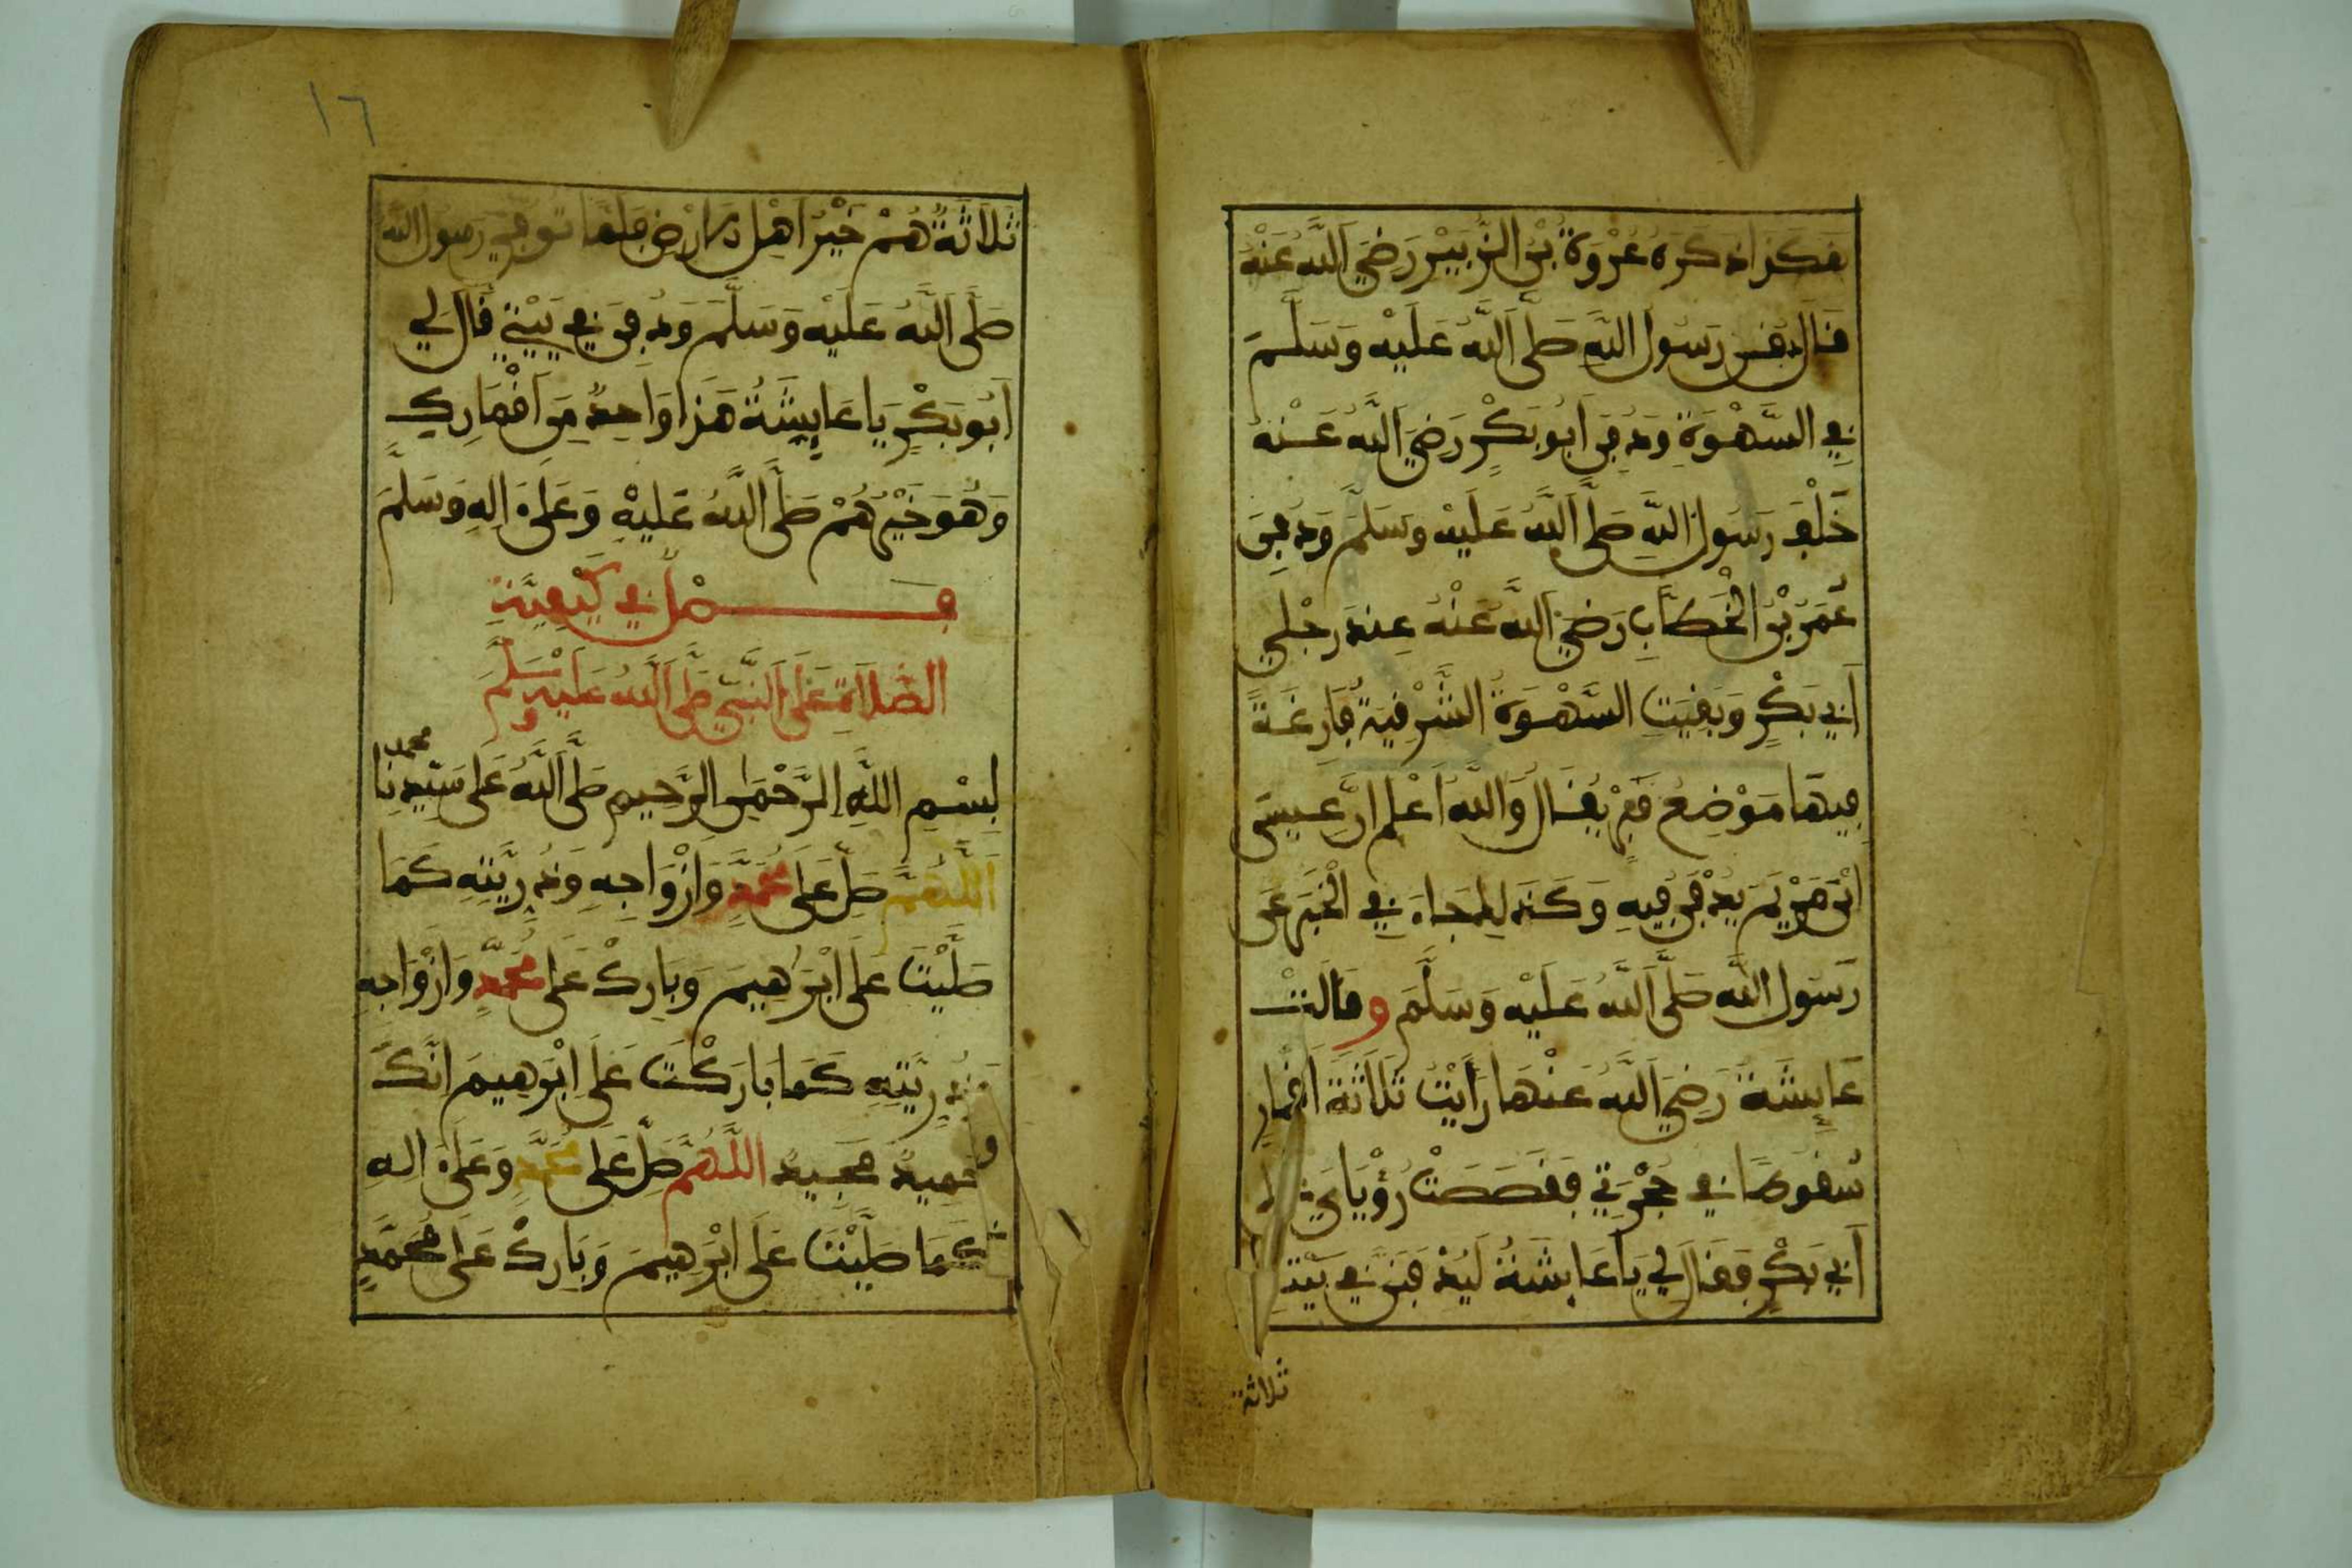 هَكَذَا ذَكَرَهُ عُرْوَةُ بْنُ الزُّبَيْرِ رَضِيَ اللَّهُ عَنْهُ
قَالَ دُفِنَ رَسُولُ اللَّهِ صَلَّى اللَّهُ عَلَيْهِ وَسَلَّمَ
فِي السَّهْوَةِ وَدُفِنَ أَبُو بَكْرٍ رَضِيَ اللَّهُ عَنْهُ
خَلْفَ رَسُولِ اللَّهِ صَلَّى اللَّهُ عَلَيْهِ وَسَلَّمَ وَدُفِنَ
عُمَرُ بْنُ الْخَطَّابِ رَضِيَ اللَّهُ عَنْهُ عِنْدَ رِجْلَيْ
أَبِي بَكْرٍ وَبَقِيَتِ السَّهْوَةُ الشَّرْقِيَّةُ فَارِغَةً
فِيهَا مَوْضِعُ قَبْرٍ يُقَالُ وَاللَّهُ أَعْلَمُ إِنَّ عِيسَى
ابْنَ مَرْيَمَ يُدْفَنُ فِيهِ وَكَذَلِكَ جَاءَ فِي الْخَبَرِ عَنْ
رَسُولِ اللَّهِ صَلَّى اللَّهُ عَلَيْهِ وَسَلَّمَ وَقَالَتْ
عَائِشَةُ رَضِيَ اللَّهُ عَنْهَا رَأَيْتُ ثَلَاثَةَ أَقْمَارٍ
سُقُوطًا فِي حُجْرَتِي فَقَصَصْتُ رُؤْيَايَ
أَبِي بَكْرٍ فَقَالَ لِي يَا عَائِشَةُ لَيُدْفَنَنَّ فِي بَيْتِ
ثلاثة
١٦
ثَلَاثَةٌ هُمْ خَيْرُ أَهْلِ الْأَرْضِ فَلَمَّا تُوُفِّيَ رَسُولُ اللَّهِ
صَلَّى اللَّهُ عَلَيْهِ وَسَلَّمَ وَدُفِنَ فِي بَيْتِي قَالَ لِي
أَبُو بَكْرٍ يَا عَائِشَةُ هَذَا وَاحِدٌ مِنْ أَقْمَارِكِ
وَهُوَ خَيْرُهُمْ صَلَّى اللَّهُ عَلَيْهِ وَعَلَى آلِهِ وَسَلَّمَ
فَصْلٌ فِي كَيْفِيَّةِ
الصَّلَاةِ عَلَى النَّبِيِّ صَلَّى اللَّهُ عَلَيْهِ وَسَلَّمَ
بِسْمِ اللَّهِ الرَّحْمَنِ الرَّحِيمِ صَلَّى اللَّهُ عَلَى سَيِّدِنَا محمد
اللَّهُمَّ صَلِّ عَلَى مُحَمَّدٍ وَأَزْوَاجِهِ وَذُرِّيَّتِهِ كَمَا
صَلَّيْتَ عَلَى إِبْرَاهِيمَ وَبَارِكْ عَلَى مُحَمَّدٍ وَأَزْوَاجِهِ
وَذُرِّيَّتِهِ كَمَا بَارَكْتَ عَلَى إِبْرَاهِيمَ إِنَّكَ
حَمِيدٌ مَجِيدٌ اللَّهُمَّ صَلِّ عَلَى مُحَمَّدٍ وَعَلَى آلِهِ
كَمَا صَلَّيْتَ عَلَى إِبْرَاهِيمَ وَبَارِكْ عَلَى مُحَمَّدٍ